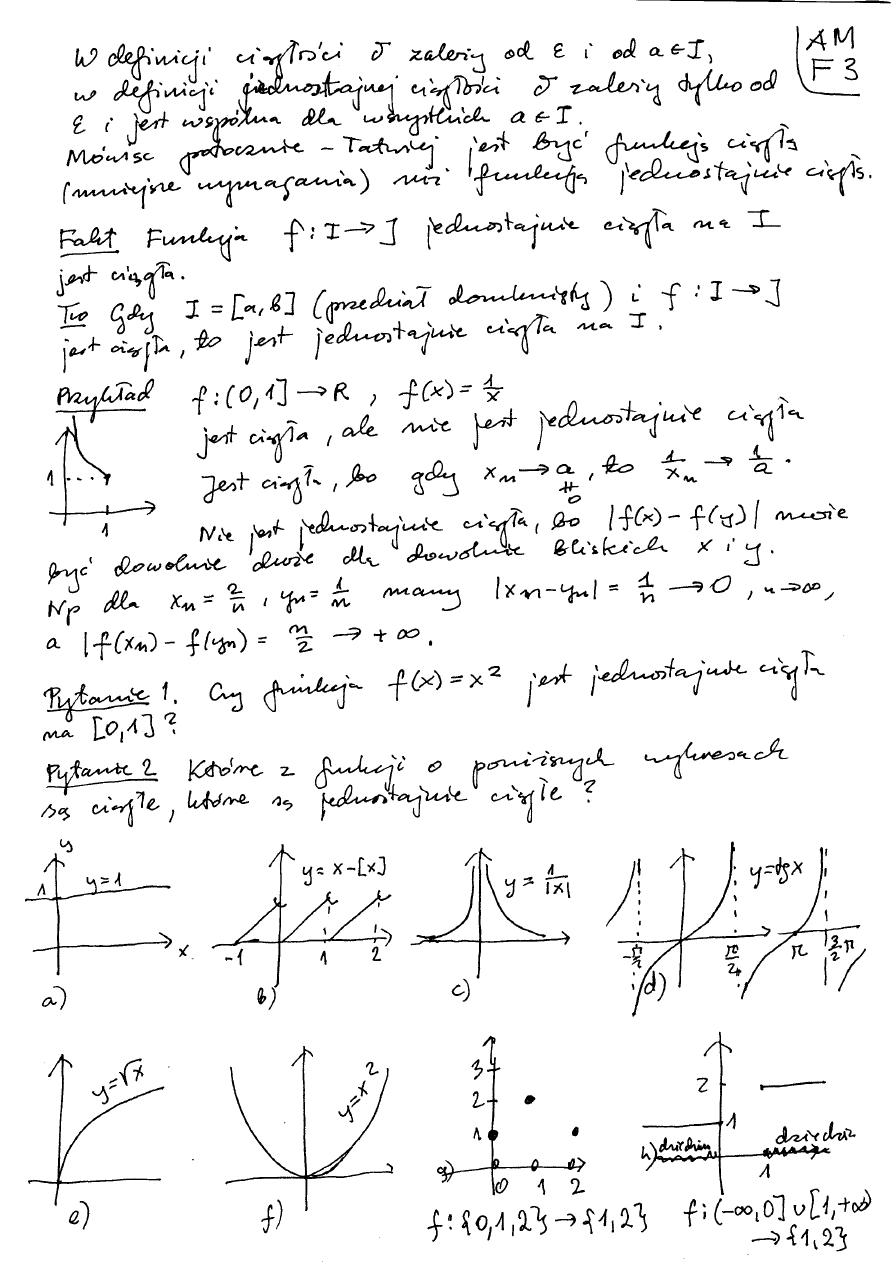 W definicji ciągłości δ zależy od ε i od a∈I,
w definicji jednostajnej ciągłości δ zależy tylko od
ε i jest wspólna dla wszystkich a∈I.
Mówiąc potocznie – łatwiej jest być funkcją ciągłą
(mniejsze wymagania) niż funkcją jednostajnie ciągłą.
AM
F3
Fakt Funkcja f: I→J jednostajnie ciągła na I
jest ciągła.
Tw Gdy I = [a,b] (przedział domknięty) i f: I→J
jest ciągła, to jest jednostajnie ciągła na I.
Przykład f: (0,1] → R, f(x) = 1/x
jest ciągła, ale nie jest jednostajnie ciągła
Jest ciągła, bo gdy xₙ → a ≠ 0, to 1/xₙ → 1/a.
Nie jest jednostajnie ciągła, bo |f(x) – f(y)| może
być dowolnie duże dla dowolnie bliskich x i y.
Np dla xₙ = 2/n, yₙ = 1/n mamy |xₙ–yₙ| = 1/n → 0, n→∞,
a |f(xₙ) – f(yₙ) = n/2 → +∞.
1
1
Pytanie 1. Czy funkcja f(x) = x² jest jednostajnie ciągła
na [0,1]?
Pytanie 2 Które z funkcji o poniższych wykresach
są ciągłe, które są jednostajnie ciągłe?
y
1 y=1
x
a)
y = x–[x]
-1 1 2
b)
y = 1/|x|
c)
y=tg x
-π/2 π/2 π 3/2 π
d)
y=√x
e)
y=x²
f)
3
2
1
g) 0 1 2
f: {0,1,2} → {1,2}
2
1
h) dziedzin dziedzi
1
f: (-∞,0] ∪ [1,+∞)
→ {1,2}